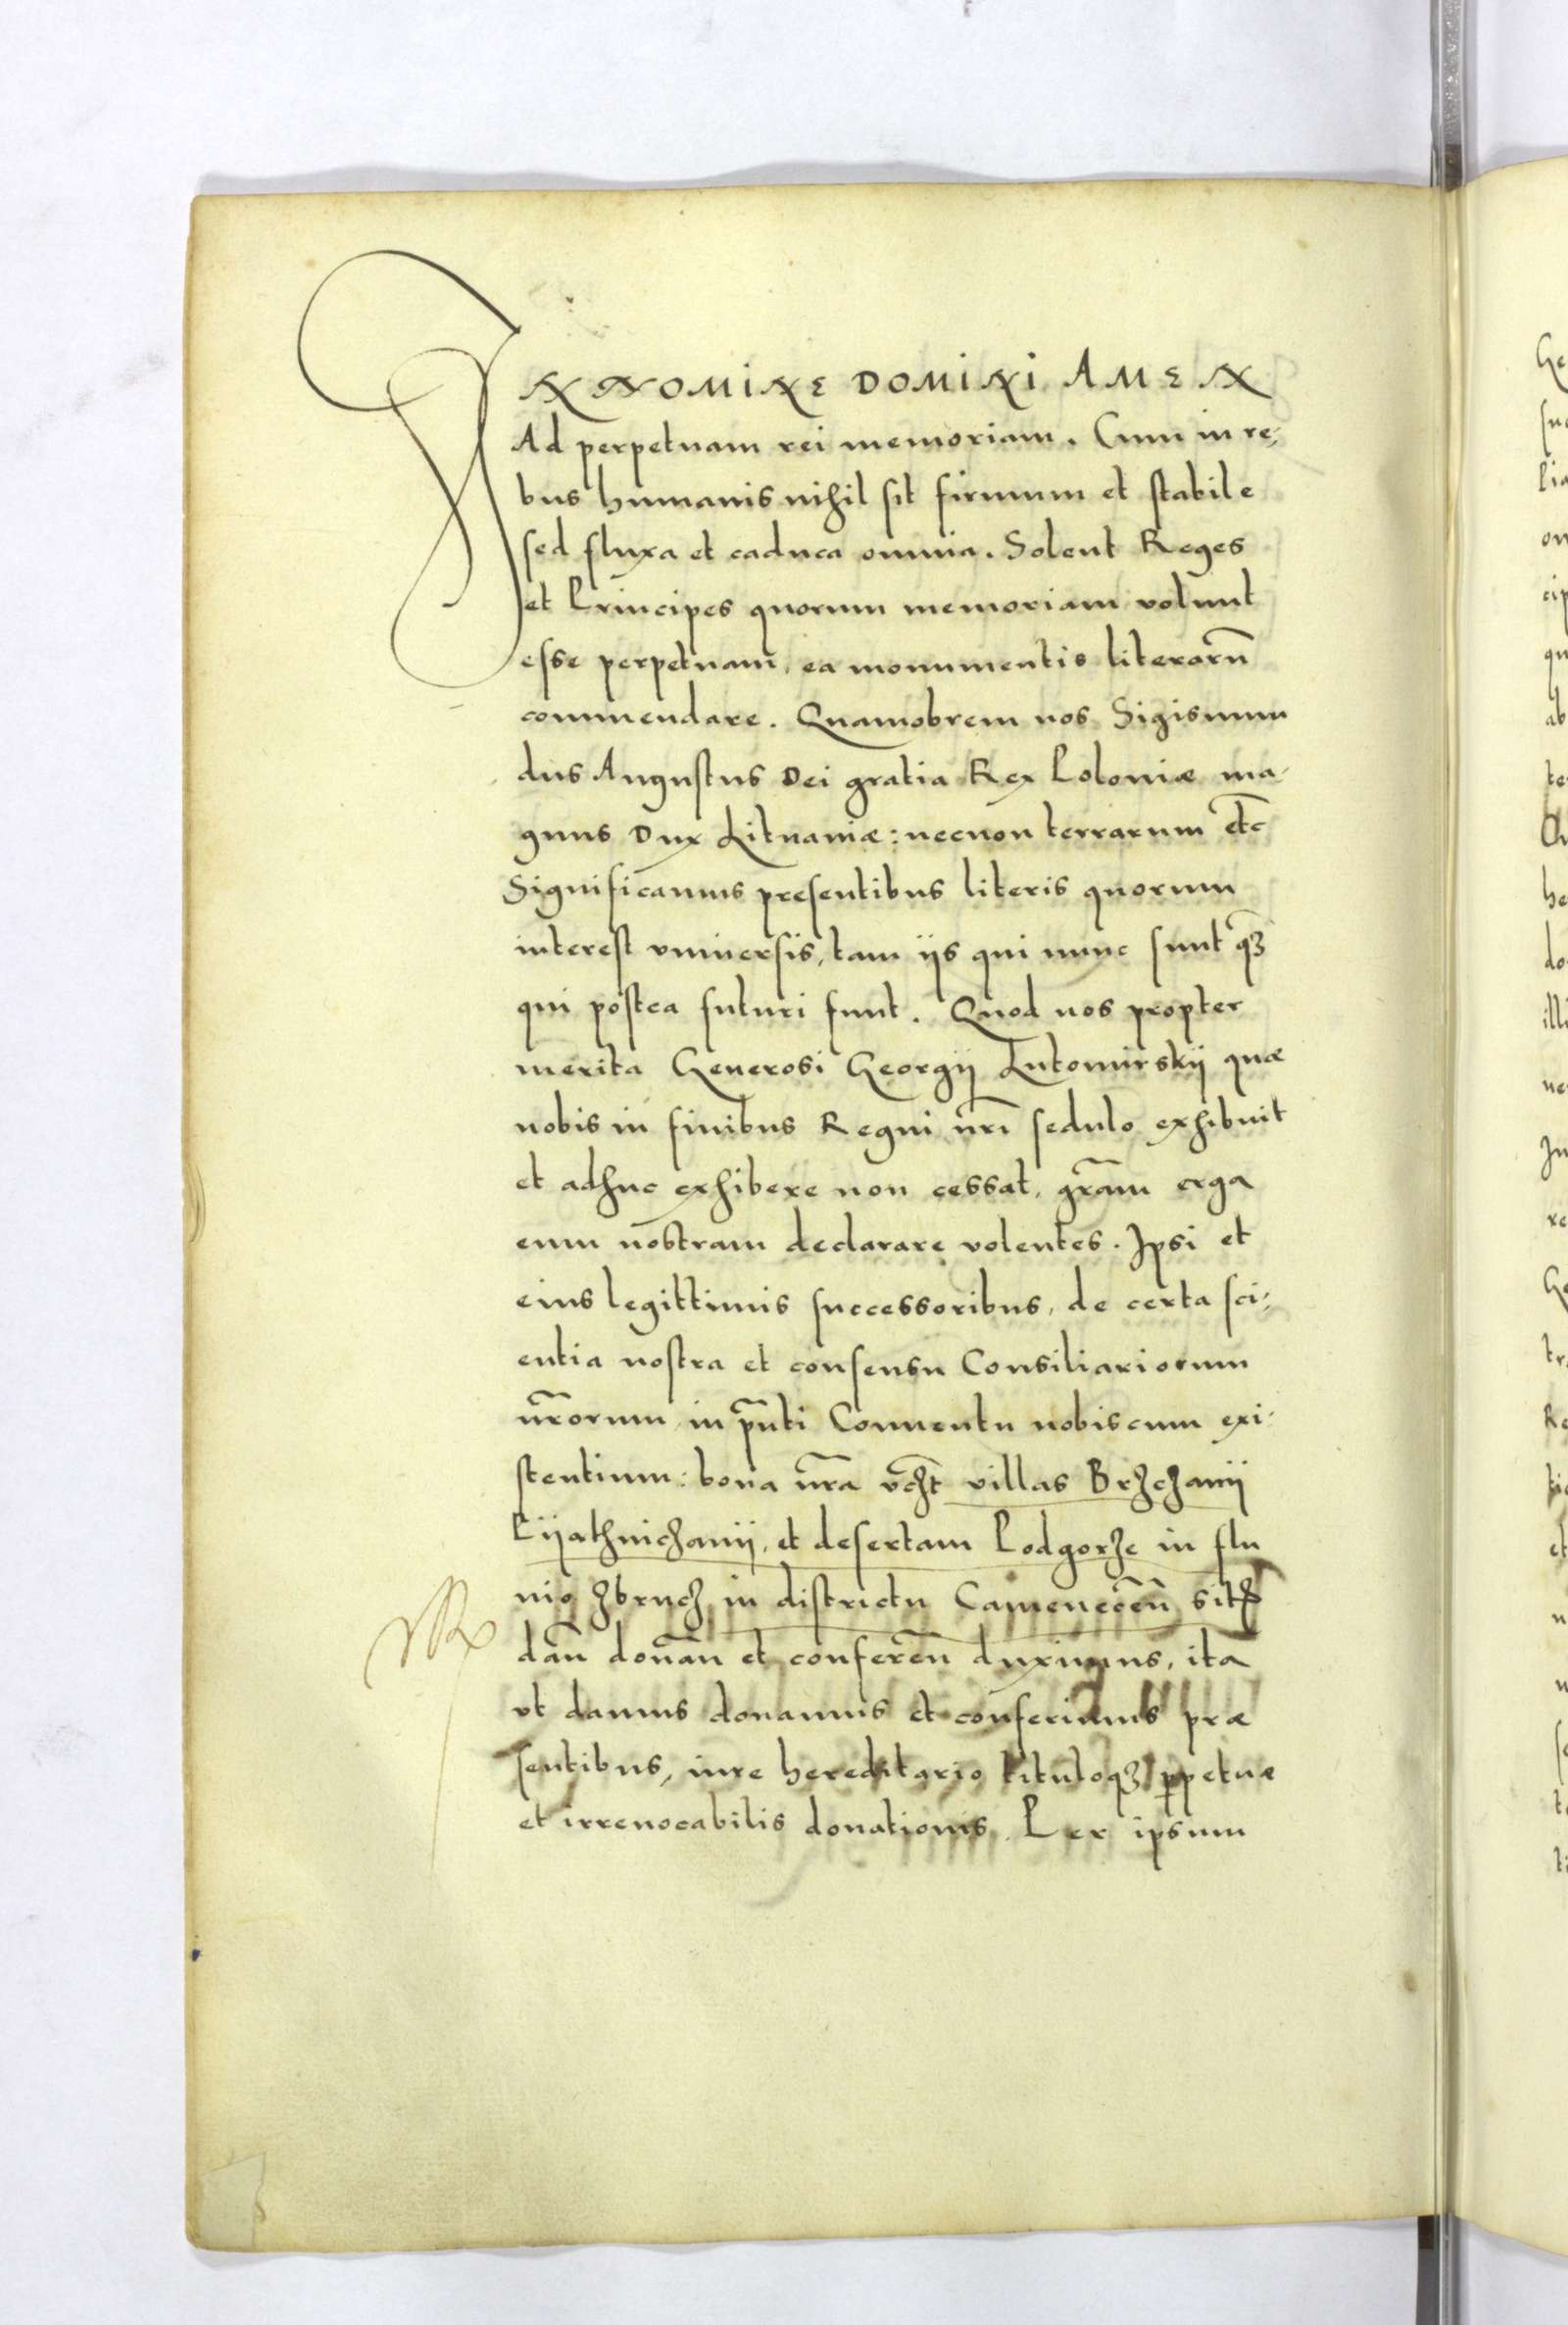 IN NOMINE DOMINI AMEN
Ad perpetuam rei memoriam. Cum in re,
bus humanis nihil sit firmum et stabile
sed fluxa et caduca omnia. Solent Reges
et Principes quorum memoriam volunt
esse perpetuam, ea monumentis literarũ
commendare. Quamobrem nos Sigismun
dus Augustus Dei gratia Rex Poloniæ ma-
gnus Dux Lituaniæ: necnon terrarum etc̃
Significamus presentibus literis quorum
interest vniuersis, tam ijs qui nunc sunt q̃ȝ
qui postea futuri sunt. Quod nos propter
merita Generosi Georgij Lutomirskij quæ
nobis in finibus Regni nr̃i sedulo exhibuit
et adhuc exhibere non cessat, gr̃am erga
eum nostram declarare volentes. Ipsi et
eius legittimis successoribus, de certa sci-
entia nostra et consensu Consiliariorum
nr̃orum in pñti Conuentu nobiscum exi-
stentium: bona nr̃a vcȝt̃ villas Brzczanij
Pijathniczanij, et desertam Podgorze in flu
uio Zbrucz in districtu Cameneceñ sitꝭ
dañ donañ et confereñ duximus, ita
vt damus donamus et conferimus præ
sentibus, iure hereditario tituloqȝ ꝑpetuæ
et irreuocabilis donationis. Per ipsum